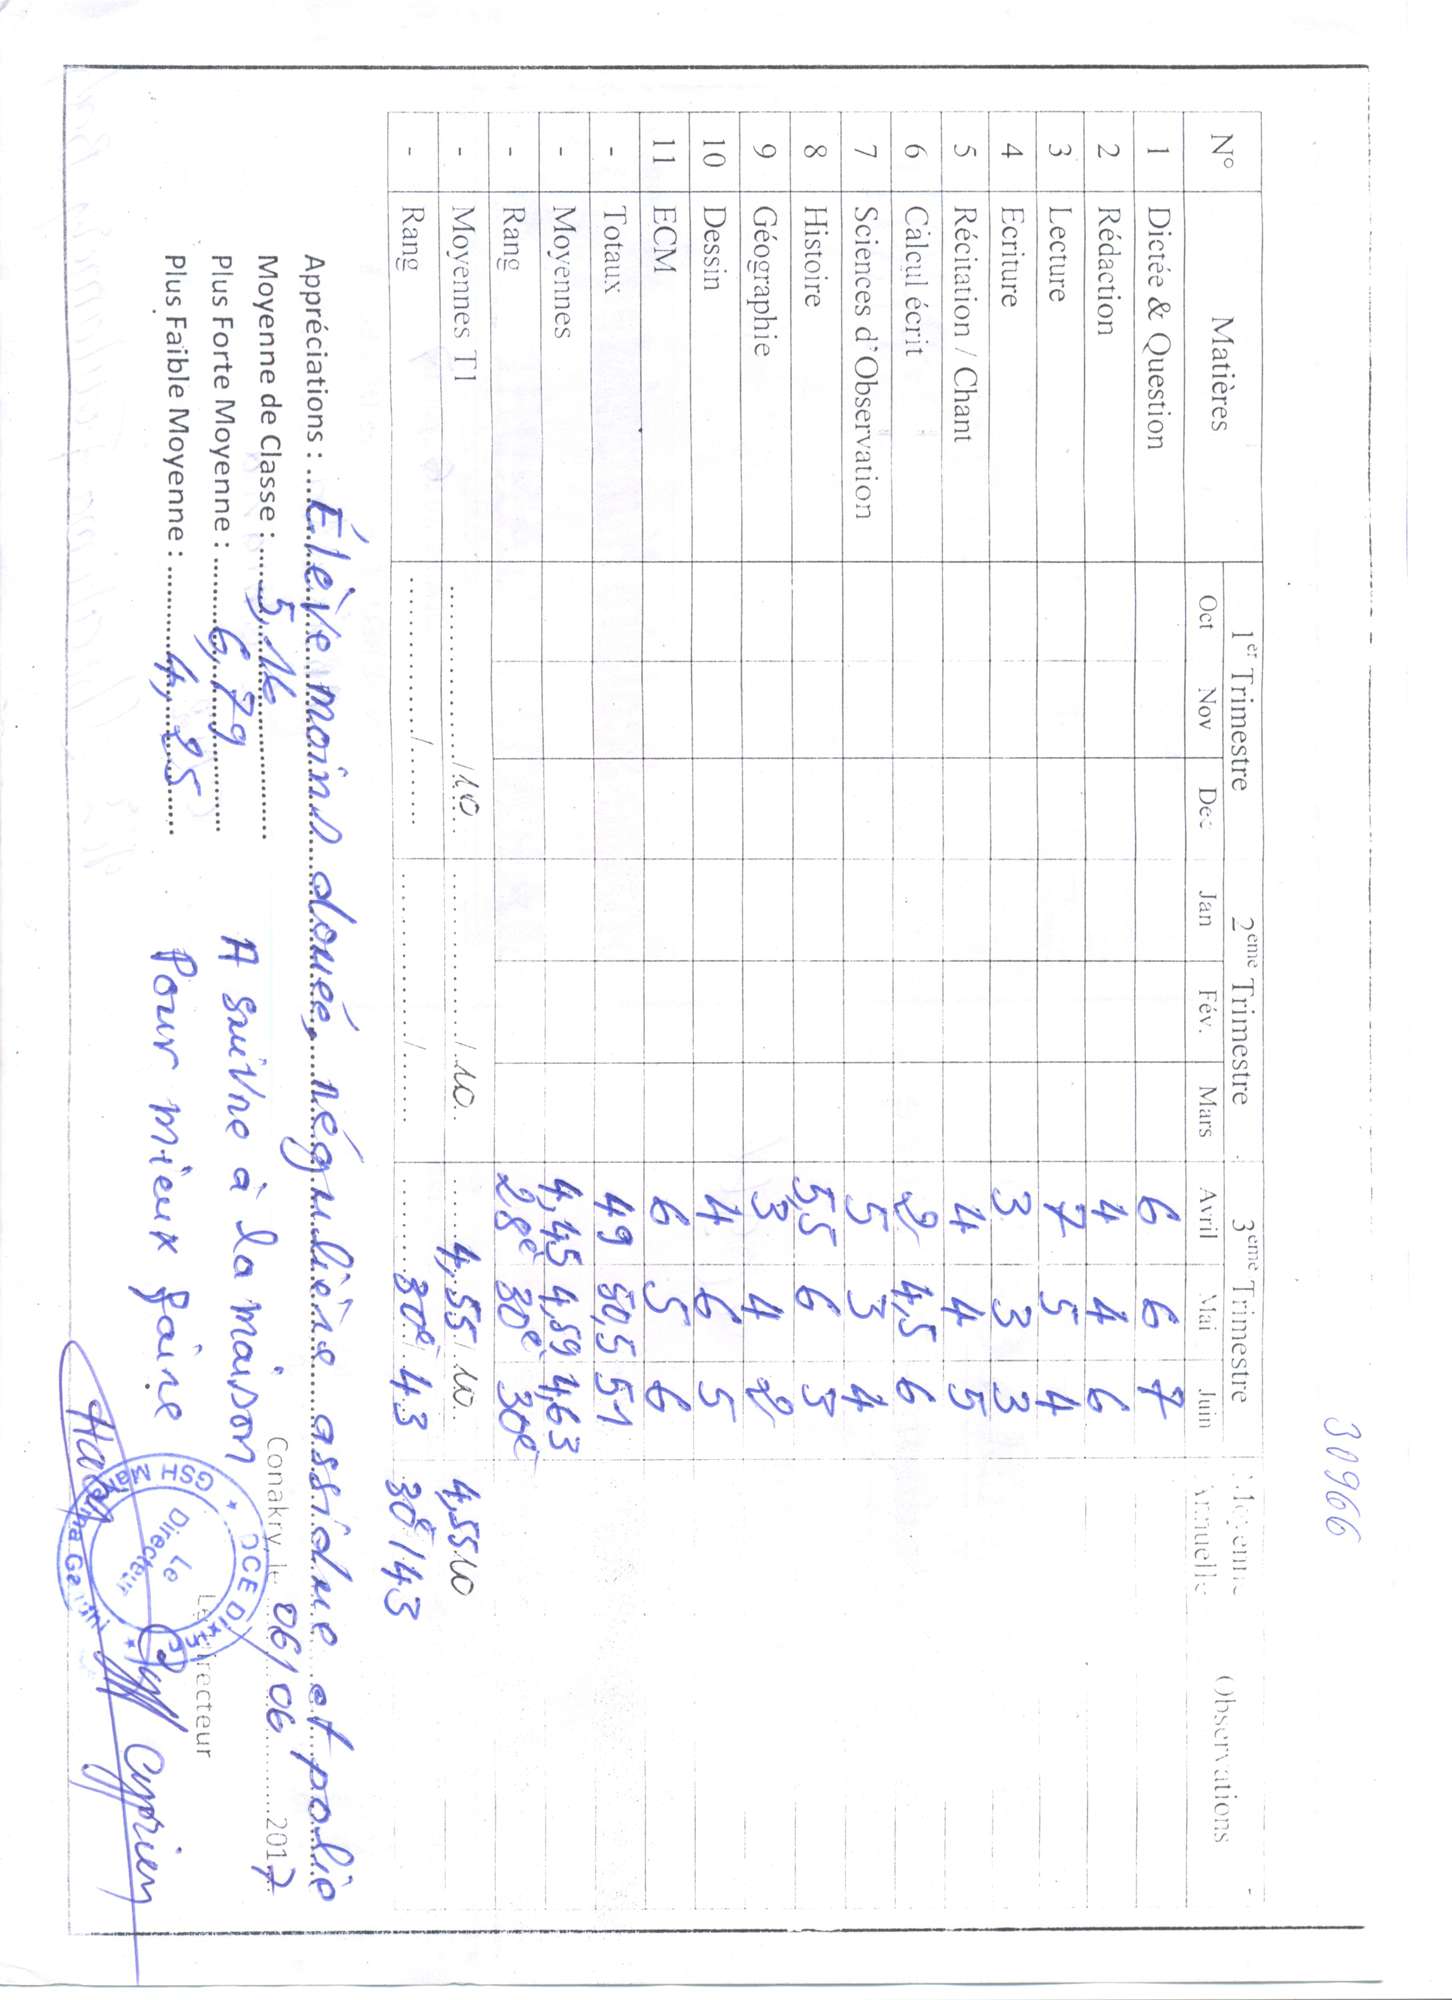 30966
N° Matières 1er Trimestre 2eme Trimestre 3eme Trimestre Moyenne Annuelle Observations
Oct Nov Dec Jan Fév. Mars Avril Mai Juin
1 Dictée & Question 6 6 7
2 Rédaction 4 4 6
3 Lecture 7 5 4
4 Ecriture 3 3 3
5 Récitation / Chant 4 4 5
6 Calcul écrit 2 4,5 6
7 Sciences d'Observation 5 3 4
8 Histoire 5,5 6 3
9 Géographie 3 4 2
10 Dessin 4 6 5
11 ECM 6 5 6
- Totaux 49 50,5 51
- Moyennes 4,45 4,59 4,63
- Rang 28e 30e 30e
- Moyennes T1 ................../10.. ................../.10.. ........4,55/.10. 4,55 10
- Rang ................../........ ................../........ ..........30e/.43 30e/43
Appréciations : ...Élève moins douée, régulière assidue et polie
Moyenne de Classe : .....5,16..................
Plus Forte Moyenne : ........6,79............
Plus Faible Moyenne : .........4,25.......
A suivre à la maison
Pour mieux faire
Conakry, le 06/06..........2017
Le Directeur
DCE Dixinn
GSH Mar
Le Directeur
Cyprien